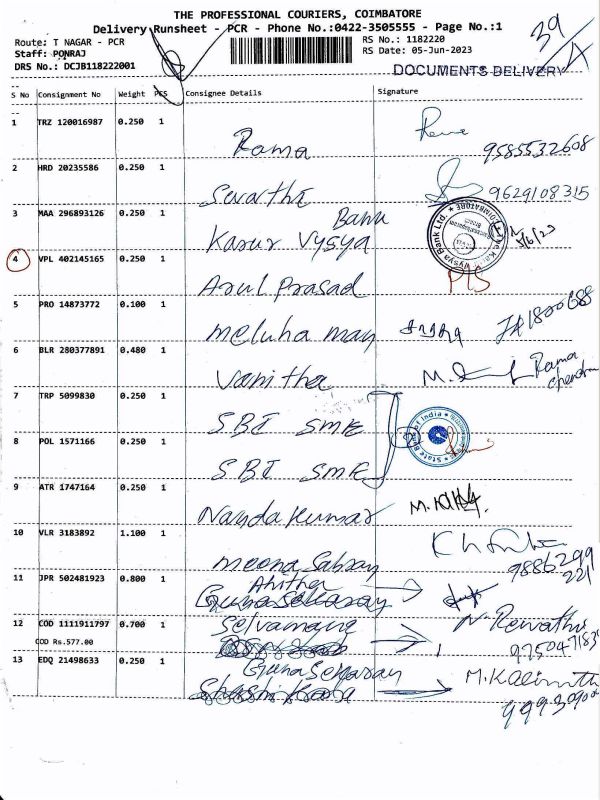 THE PROFESSIONAL COURIERS, COIMBATORE
Delivery Runsheet - PCR - Phone No.:0422-3505555 - Page No.:1
Route: T NAGAR - PCR
Staff: PONRAJ
DRS No.: DCJB118222001
RS No.: 1182220
RS Date: 05-Jun-2023
39/A
DOCUMENTS DELIVERY
S No Consignment No Weight PCS Consignee Details Signature
1 TRZ 120016987 0.250 1 Rama 9585532608
2 HRD 20235586 0.250 1 Swartha 9629108315
3 MAA 296893126 0.250 1 Karur Vysya Bank 5/6/23
4 VPL 402145165 0.250 1 Arul Prasad
5 PRO 14873772 0.100 1 meluha may
6 BLR 280377891 0.480 1 Vanitha Rama
7 TRP 5099830 0.250 1 SBI SME
State Bank of India
8 POL 1571166 0.250 1 SBI SME
9 ATR 1747164 0.250 1 Nandakumar
10 VLR 3183892 1.100 1 9886299221
11 JPR 502481923 0.800 1 Anitha
Gunasekaray
12 COD 1111911797 0.700 1 N. Revathi
COD Rs.577.00
13 EDQ 21498633 0.250 1 Gunasekaray